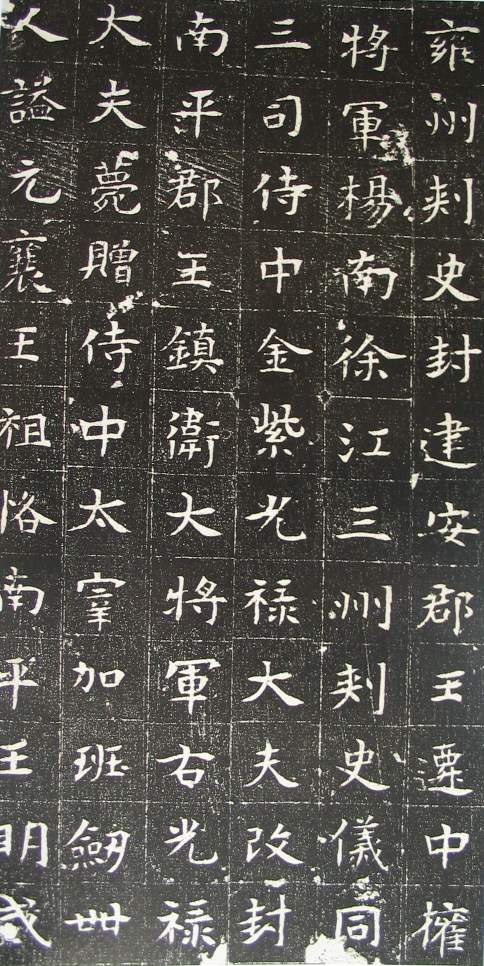 雍州刾史封建安郡王遷中擁
將軍楊南徐江三州刾史儀同
三司侍中金紫光禄大夫改封
南平郡王鎮衛大將軍右光禄
大夫薨贈侍中太宰加班劒卅
人謚元襄王祖恪南平王明威